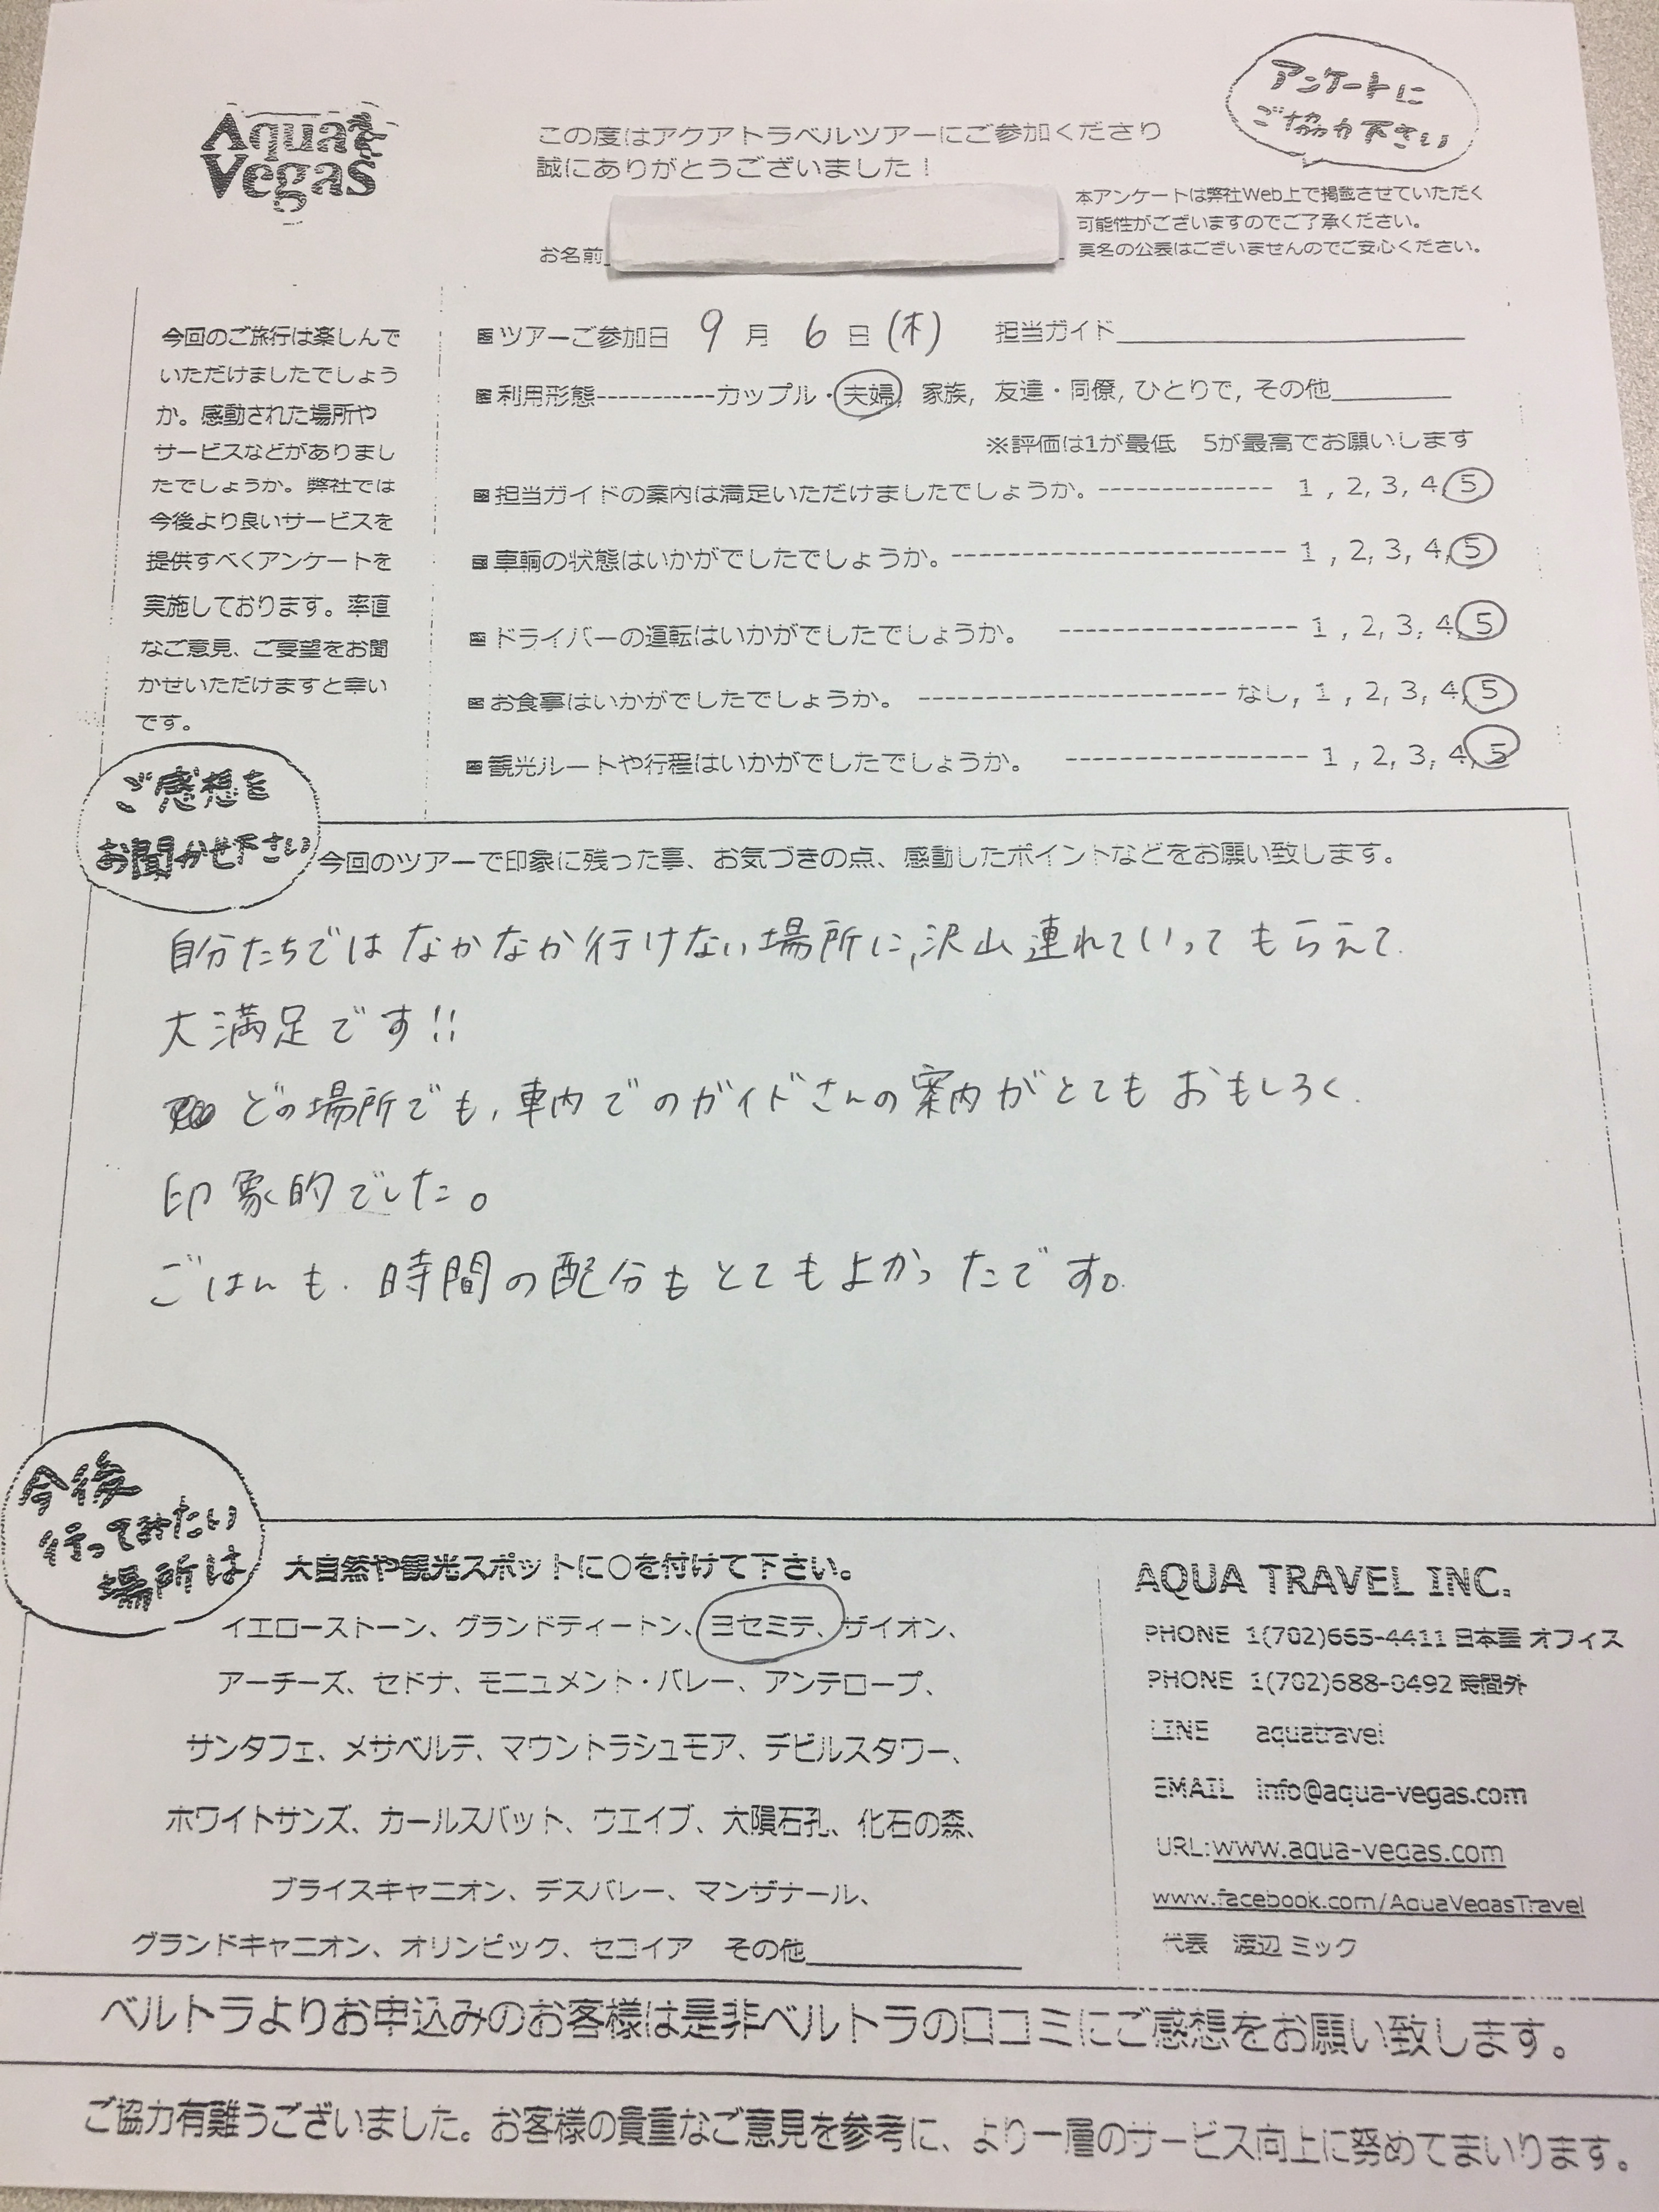 Aqua
Vegas
アンケートに
ご協力下さい
この度はアクアトラベルツアーにご参加くださり
誠にありがとうございました！
本アンケートは弊社Web上で掲載させていただく
可能性がございますのでご了承ください。
実名の公表はございませんのでご安心ください。
お名前
今回のご旅行は楽しんで
いただけましたでしょう
か。感動された場所や
サービスなどがありまし
たでしょうか。弊社では
今後より良いサービスを
提供すべくアンケートを
実施しております。率直
なご意見、ご要望をお聞
かせいただけますと幸い
です。
■ツアーご参加日 9 月 6 日 (木) 担当ガイド
■利用形態-----------カップル・夫婦, 家族, 友達・同僚, ひとりで, その他
※評価は1が最低 5が最高でお願いします
■担当ガイドの案内は満足いただけましたでしょうか。-------------- 1 , 2, 3, 4, 5
■車輌の状態はいかがでしたでしょうか。--------------------------- 1 , 2, 3, 4, 5
■ドライバーの運転はいかがでしたでしょうか。 ------------------- 1 , 2, 3, 4, 5
■お食事はいかがでしたでしょうか。 ------------------------ なし, 1 , 2, 3, 4, 5
■観光ルートや行程はいかがでしたでしょうか。 ------------------- 1 , 2, 3, 4, 5
ご感想を
お聞かせ下さい
今回のツアーで印象に残った事、お気づきの点、感動したポイントなどをお願い致します。
自分たちではなかなか行けない場所に、沢山連れていってもらえて
大満足です!!
どの場所でも、車内でのガイドさんの案内がとてもおもしろく、
印象的でした。
ごはんも、時間の配分もとてもよかったです。
今後
行ってみたい
場所は
大自然や観光スポットに○を付けて下さい。
イエローストーン、グランドティートン、ヨセミテ、ザイオン、
アーチーズ、セドナ、モニュメント・バレー、アンテロープ、
サンタフェ、メサベルテ、マウントラシュモア、デビルスタワー、
ホワイトサンズ、カールスバット、ウエイブ、大隕石孔、化石の森、
ブライスキャニオン、デスバレー、マンザナール、
グランドキャニオン、オリンピック、セコイア その他
AQUA TRAVEL INC.
PHONE 1(702)665-4411 日本語 オフィス
PHONE 1(702)688-0492 時間外
LINE aquatravel
EMAIL info@aqua-vegas.com
URL:www.aqua-vegas.com
www.facebook.com/AquaVegasTravel
代表 渡辺 ミック
ベルトラよりお申込みのお客様は是非ベルトラの口コミにご感想をお願い致します。
ご協力有難うございました。お客様の貴重なご意見を参考に、より一層のサービス向上に努めてまいります。